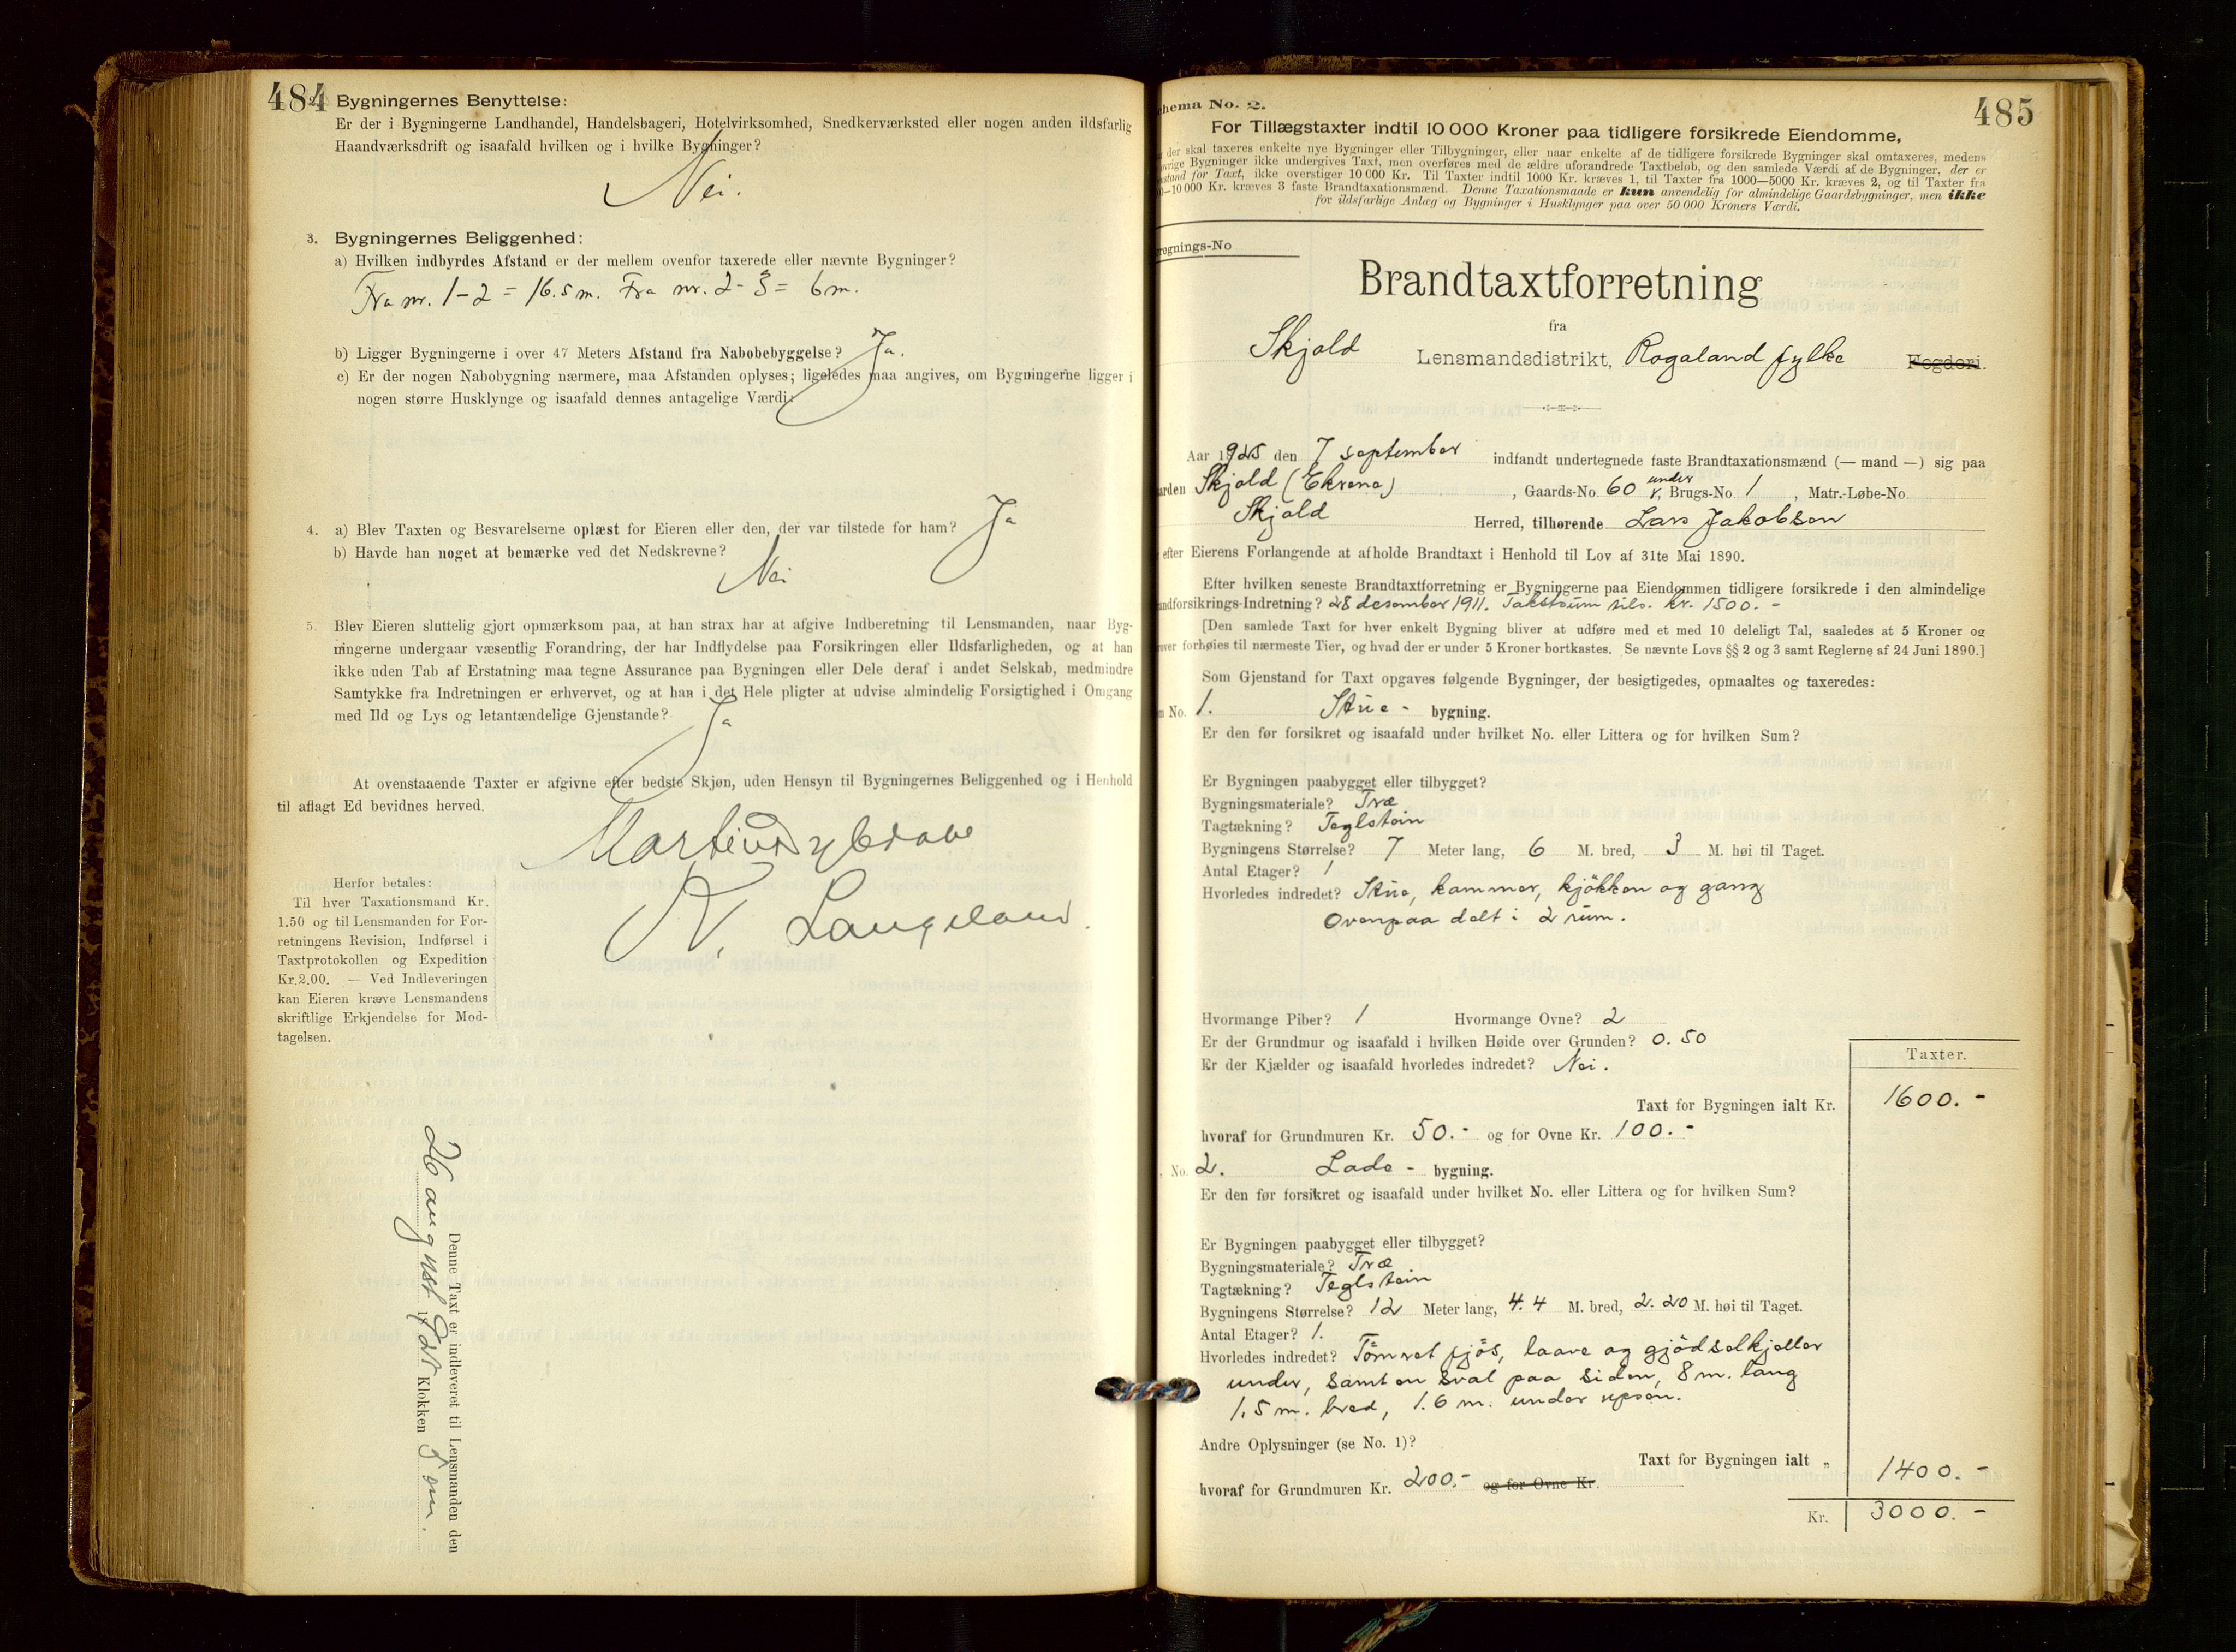 484
2. Bygningernes Benyttelse:
Er der i Bygningerne Landhandel, Handelsbageri, Hotelvirksomhed, Snedkerværksted eller nogen anden ildsfarlig
Haandværksdrift og isaafald hvilken og i hvilke Bygninger?
Nei.
3. Bygningernes Beliggenhed:
a) Hvilken indbyrdes Afstand er der mellem ovenfor taxerede eller nævnte Bygninger?
Fra nr. 1-2 = 16.5 m. Fra nr. 2-3 = 6 m.
b) Ligger Bygningerne i over 47 Meters Afstand fra Nabobebyggelse? Ja.
c) Er der nogen Nabobygning nærmere, maa Afstanden oplyses; ligeledes maa angives, om Bygningerne ligger i
nogen større Husklynge og isaafald dennes antagelige Værdi:
4. a) Blev Taxten og Besvarelserne oplæst for Eieren eller den, der var tilstede for ham? Ja
b) Havde han noget at bemærke ved det Nedskrevne?
Nei
5. Blev Eieren sluttelig gjort opmærksom paa, at han strax har at afgive Indberetning til Lensmanden, naar Byg-
ningerne undergaar væsentlig Forandring, der har Indflydelse paa Forsikringen eller Ildsfarligheden, og at han
ikke uden Tab af Erstatning maa tegne Assurance paa Bygningen eller Dele deraf i andet Selskab, medmindre
Samtykke fra Indretningen er erhvervet, og at han i det Hele pligter at udvise almindelig Forsigtighed i Omgang
med Ild og Lys og letantændelige Gjenstande? Ja
At ovenstaaende Taxter er afgivne efter bedste Skjøn, uden Hensyn til Bygningernes Beliggenhed og i Henhold
til aflagt Ed bevidnes herved.
N. Langeland.
Herfor betales:
Til hver Taxationsmand Kr.
1.50 og til Lensmanden for For-
retningens Revision, Indførsel i
Taxtprotokollen og Expedition
Kr. 2.00. — Ved Indleveringen
kan Eieren kræve Lensmandens
skriftlige Erkjendelse for Mod-
tagelsen.
Denne Taxt er indleveret til Lensmanden den
26 august Klokken 5
485
chema No. 2.
For Tillægstaxter indtil 10 000 Kroner paa tidligere forsikrede Eiendomme,
der skal taxeres enkelte nye Bygninger eller Tilbygninger, eller naar enkelte af de tidligere forsikrede Bygninger skal omtaxeres, medens
øvrige Bygninger ikke undergives Taxt, men overføres med de ældre uforandrede Taxtbeløb, og den samlede Værdi af de Bygninger, der er
nstand for Taxt, ikke overstiger 10 000 Kr. Til Taxter indtil 1000 Kr. kræves 1, til Taxter fra 1000—5000 Kr. kræves 2, og til Taxter fra
0—10 000 Kr. kræves 3 faste Brandtaxationsmænd. Denne Taxationsmaade er kun anvendelig for almindelige Gaardsbygninger, men ikke
for ildsfarlige Anlæg og Bygninger i Husklynger paa over 50 000 Kroners Værdi.
regnings-No
Brandtaxtforretning
fra
Skjold Lensmandsdistrikt, Rogaland fylke Fogderi.
Aar 1925 den 7 september indfandt undertegnede faste Brandtaxationsmænd (— mand —) sig paa
arden Skjold (Ekrene), Gaards-No. 60 under Brugs-No. 1, Matr.-Løbe-No.
Skjold Herred, tilhørende Lars Jakobsen
efter Eierens Forlangende at afholde Brandtaxt i Henhold til Lov af 31te Mai 1890.
Efter hvilken seneste Brandtaxtforretning er Bygningerne paa Eiendommen tidligere forsikrede i den almindelige
andforsikrings-Indretning? 28 desember 1911. Takstsum kr. 1500.-
[Den samlede Taxt for hver enkelt Bygning bliver at udføre med et med 10 deleligt Tal, saaledes at 5 Kroner og
over forhøies til nærmeste Tier, og hvad der er under 5 Kroner bortkastes. Se nævnte Lovs §§ 2 og 3 samt Reglerne af 24 Juni 1890.]
Som Gjenstand for Taxt opgaves følgende Bygninger, der besigtigedes, opmaaltes og taxeredes:
No. 1. Stue - bygning.
Er den før forsikret og isaafald under hvilket No. eller Littera og for hvilken Sum?
Er Bygningen paabygget eller tilbygget?
Bygningsmateriale? Træ
Tagtækning? Teglstein
Bygningens Størrelse? 7 Meter lang, 6 M. bred, 3 M. høi til Taget.
Antal Etager? 1
Hvorledes indredet? Stue, kammer, kjökken og gang
Ovenpaa delt i 2 rum.
Hvormange Piber? 1 Hvormange Ovne? 2
Er der Grundmur og isaafald i hvilken Høide over Grunden? 0.50
Er der Kjælder og isaafald hvorledes indredet? Nei.
Taxter.
Taxt for Bygningen ialt Kr. 1600.-
hvoraf for Grundmuren Kr. 50.- og for Ovne Kr. 100.-
No. 2. Lade - bygning.
Er den før forsikret og isaafald under hvilket No. eller Littera og for hvilken Sum?
Er Bygningen paabygget eller tilbygget?
Bygningsmateriale? Træ
Tagtækning? Teglstein
Bygningens Størrelse? 12 Meter lang, 4.4 M. bred, 2.20 M. høi til Taget.
Antal Etager? 1.
Hvorledes indredet? Tömret fjös, laave og gjödselkjeller
under, samt en sval paa siden, 8 m. lang
1.5 m. bred, 1.6 m. under upsen.
Andre Oplysninger (se No. 1)?
Taxt for Bygningen ialt „ 1400.-
hvoraf for Grundmuren Kr. 200.- og for Ovne Kr.
Kr. 3000.-